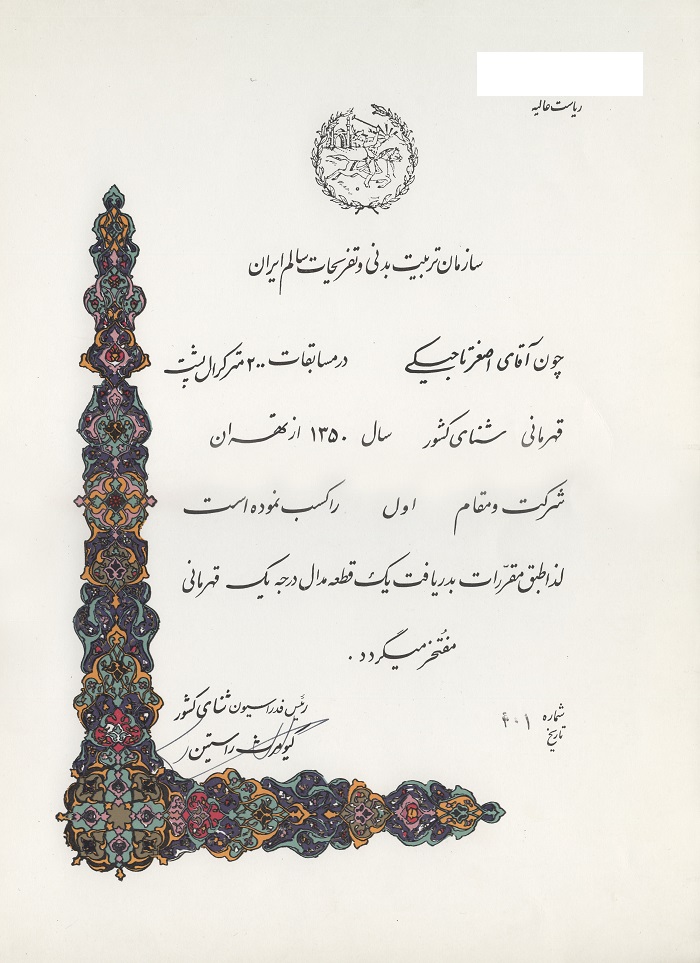 ریاست عالیه
سازمان تربیت بدنی و تفریحات سالم ایران
چون آقای اصغر تاجیکی در مسابقات ۲۰۰ متر کرال پشت
قهرمانی شنای کشور سال ۱۳۵۰ از تهران
شرکت و مقام اول را کسب نموده است
لذا طبق مقررّات بدریافت یک قطعه مدال درجه یک قهرمانی
مفتخر میگردد .
رئیس فدراسیون شنای کشور
کیومرث راستین
شماره ۴۰۱
تاریخ